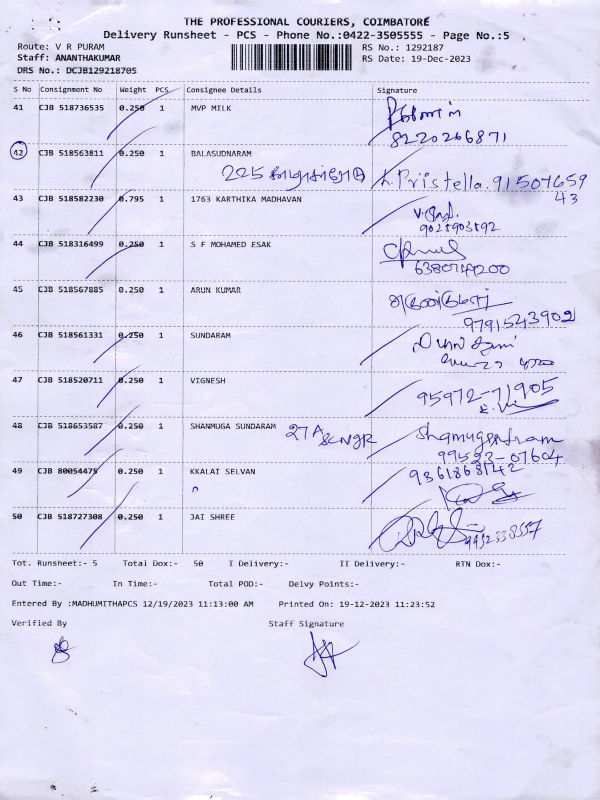 THE PROFESSIONAL COURIERS, COIMBATORE
Delivery Runsheet - PCS - Phone No.:0422-3505555 - Page No.:5
Route: V R PURAM
RS No.: 1292187
Staff: ANANTHAKUMAR
RS Date: 19-Dec-2023
DRS No.: DCJB129218705
S No Consignment No Weight PCS Consignee Details Signature
41 CJB 518736535 0.250 1 MVP MILK
8220266871
42 CJB 518563811 0.250 1 BALASUDNARAM
225 K. Pristella. 91507659
43
43 CJB 518582230 0.795 1 1763 KARTHIKA MADHAVAN
44 CJB 518316499 0.250 1 S F MOHAMED ESAK
45 CJB 518567885 0.250 1 ARUN KUMAR
அருண்குமார்
9791543902
46 CJB 518561331 0.250 1 SUNDARAM
47 CJB 518520711 0.250 1 VIGNESH
95972-71905
48 CJB 518653587 0.250 1 SHANMUGA SUNDARAM 27A
99523-07604
49 CJB 80054475 0.250 1 KKALAI SELVAN
9361868142
50 CJB 518727308 0.250 1 JAI SHREE
Tot. Runsheet:- 5 Total Dox:- 50 I Delivery:- II Delivery:- RTN Dox:-
Out Time:- In Time:- Total POD:- Delvy Points:-
Entered By :MADHUMITHAPCS 12/19/2023 11:13:00 AM Printed On: 19-12-2023 11:23:52
Verified By Staff Signature